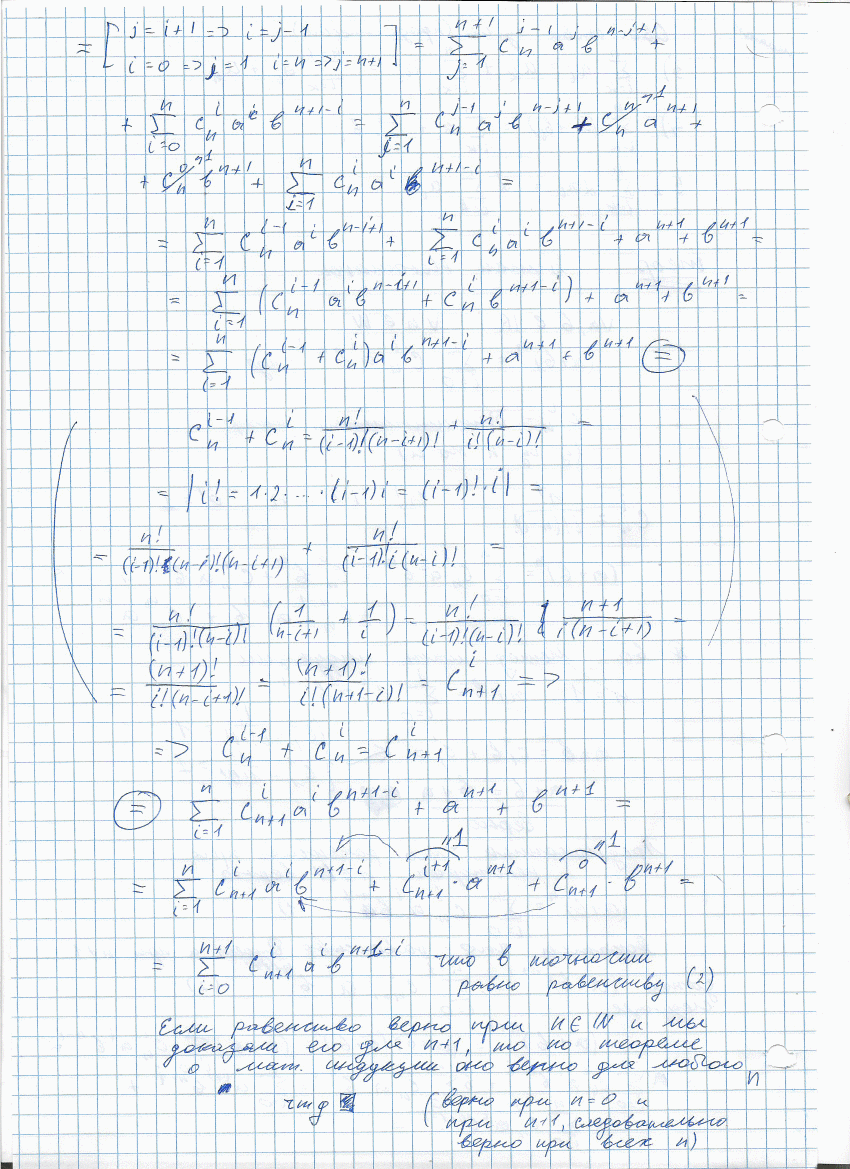 = [ j = i+1 => i = j-1
i=0 => j=1 i=n => j=n+1 ] = ∑_{j=1}^{n+1} C_n^{j-1} a^j b^{n-j+1} +
+ ∑_{i=0}^{n} C_n^i a^i b^{n+1-i} = ∑_{j=1}^{n} C_n^{j-1} a^j b^{n-j+1} + C_n^n ↗1 a^{n+1} +
+ C_n^0 ↗1 b^{n+1} + ∑_{i=1}^{n} C_n^i a^i b^{n+1-i} =
= ∑_{i=1}^{n} C_n^{i-1} a^i b^{n-i+1} + ∑_{i=1}^{n} C_n^i a^i b^{n+1-i} + a^{n+1} + b^{n+1} =
= ∑_{i=1}^{n} (C_n^{i-1} a^i b^{n-i+1} + C_n^i b^{n+1-i}) + a^{n+1} + b^{n+1} =
= ∑_{i=1}^{n} (C_n^{i-1} + C_n^i) a^i b^{n+1-i} + a^{n+1} + b^{n+1} (=)
C_n^{i-1} + C_n^i = n!/((i-1)!(n-i+1)!) + n!/(i!(n-i)!) =
= | i! = 1·2·...·(i-1)i = (i-1)!·i | =
= n!/((i-1)!(n-i)!(n-i+1)) + n!/((i-1)!i(n-i)!) =
= n!/((i-1)!(n-i)!) (1/(n-i+1) + 1/i) = n!/((i-1)!(n-i)!) (n+1)/(i(n-i+1)) =
= (n+1)!/(i!(n-i+1)!) = (n+1)!/(i!(n+1-i)!) = C_{n+1}^i =>
=> C_n^{i-1} + C_n^i = C_{n+1}^i
(=) ∑_{i=1}^{n} C_{n+1}^i a^i b^{n+1-i} + a^{n+1} + b^{n+1} =
"1 "1
= ∑_{i=1}^{n} C_{n+1}^i a^i b^{n+1-i} + C_{n+1}^{i+1} · a^{n+1} + C_{n+1}^0 · b^{n+1} =
= ∑_{i=0}^{n+1} C_{n+1}^i a^i b^{n+1-i} что в точности
равно равенству (2)
Если равенство верно при n∈ℕ и мы
доказали его для n+1, то по теореме
о мат. индукции оно верно для любого n
чтд (верно при n=0 и
при n+1, следовательно
верно при всех n)